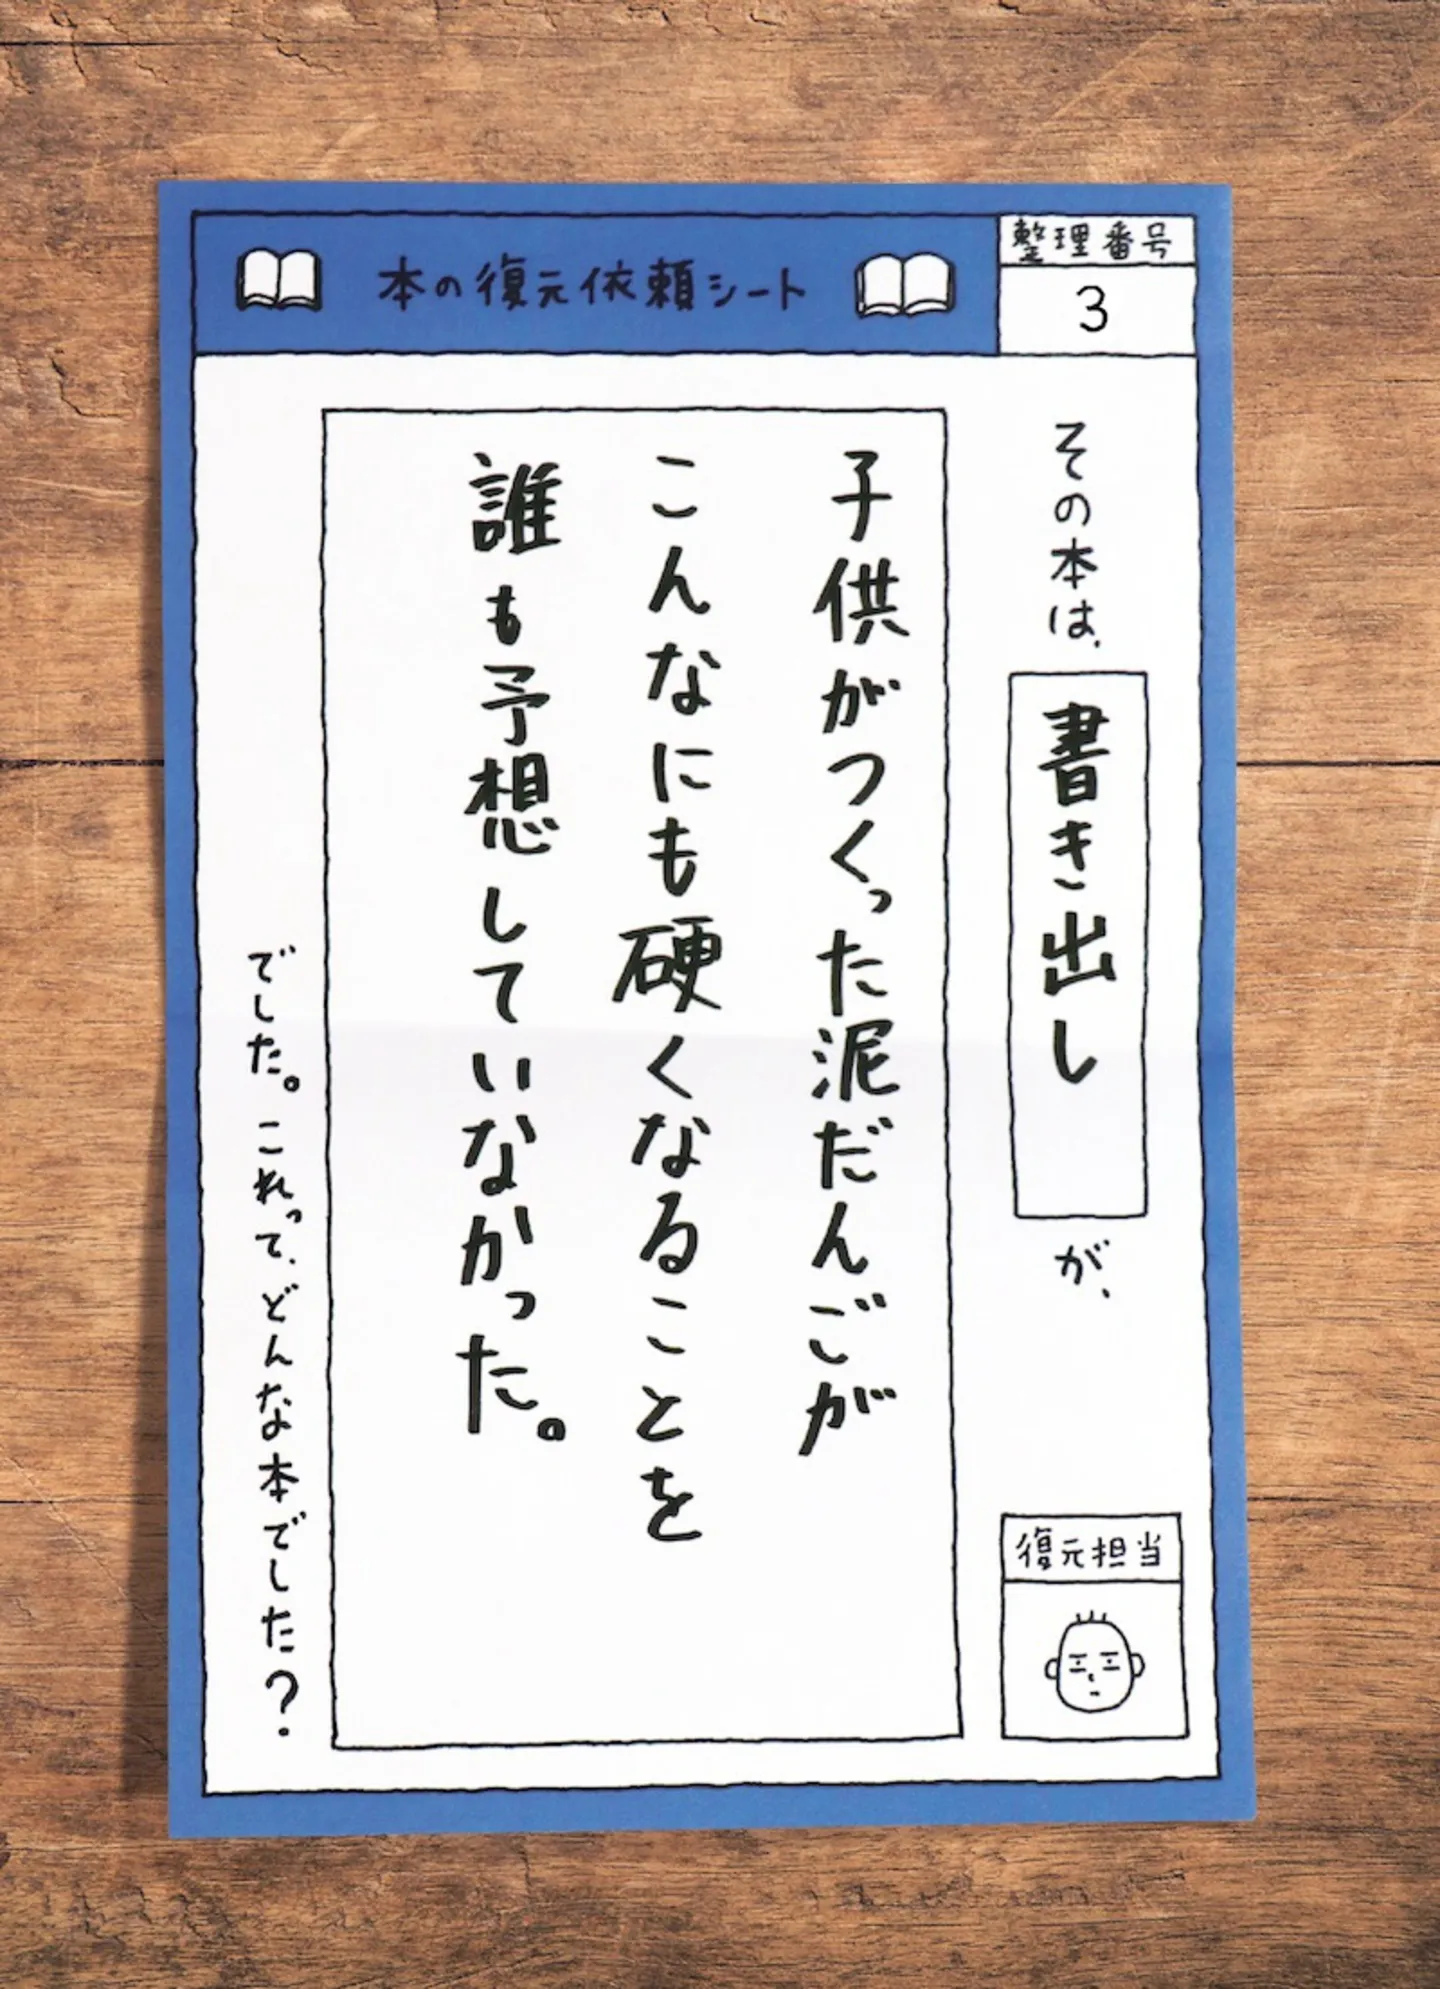 本の復元依頼シート
整理番号
3
その本は、
書き出し
が、
子供がつくった泥だんごが
こんなにも硬くなることを
誰も予想していなかった。
でした。これって、どんな本でした？
復元担当